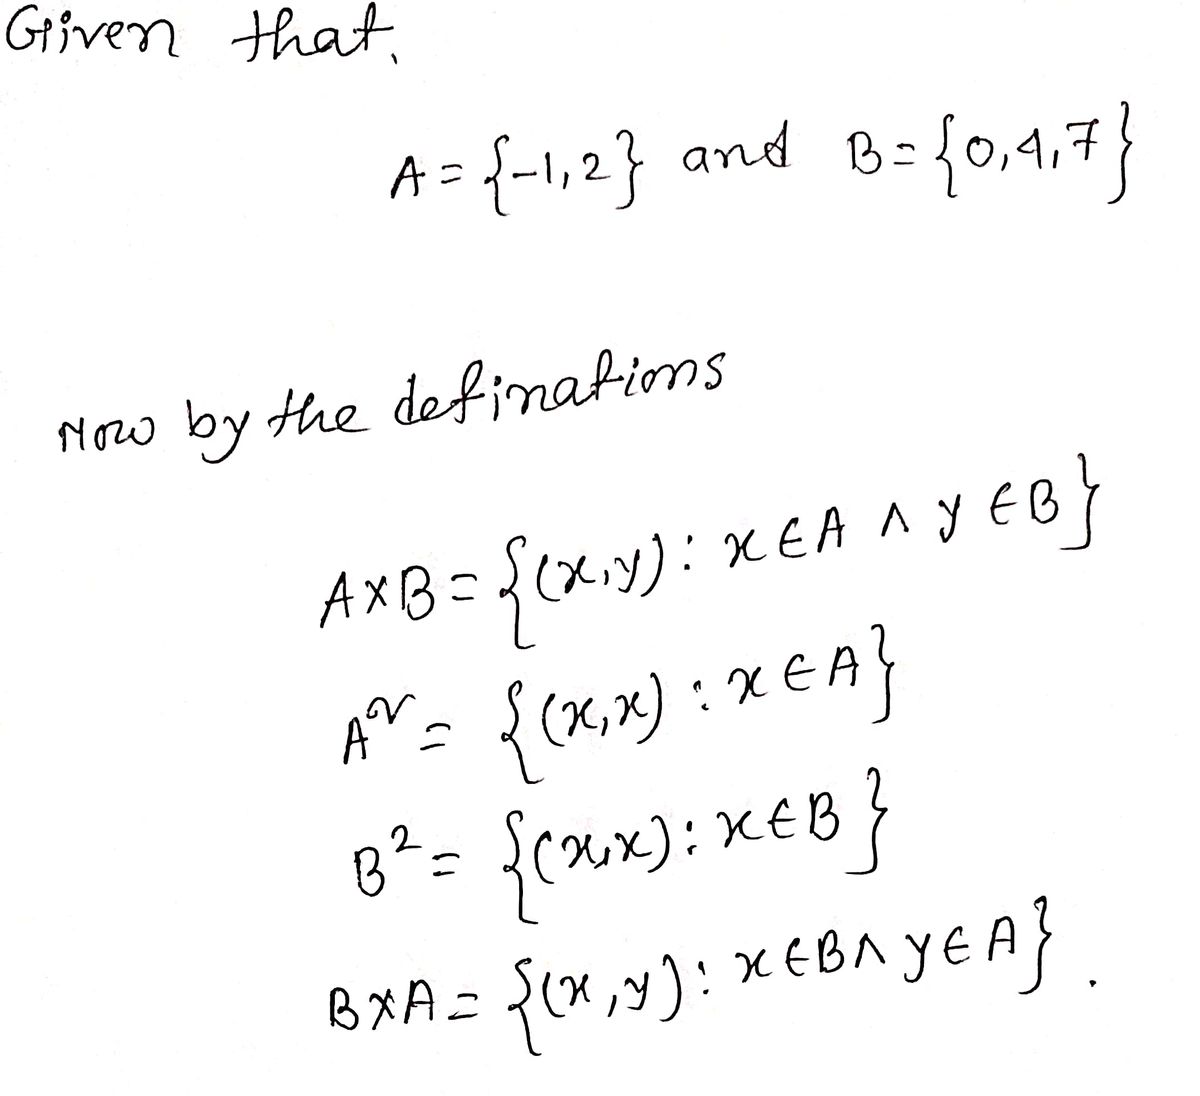 Given that,
A = {-1, 2} and B = {0, 4, 7}
Now by the definations
A×B = {(x, y) : x ∈ A ∧ y ∈ B}
A² = {(x, x) : x ∈ A}
B² = {(x, x) : x ∈ B}
B×A = {(x, y) : x ∈ B ∧ y ∈ A}.